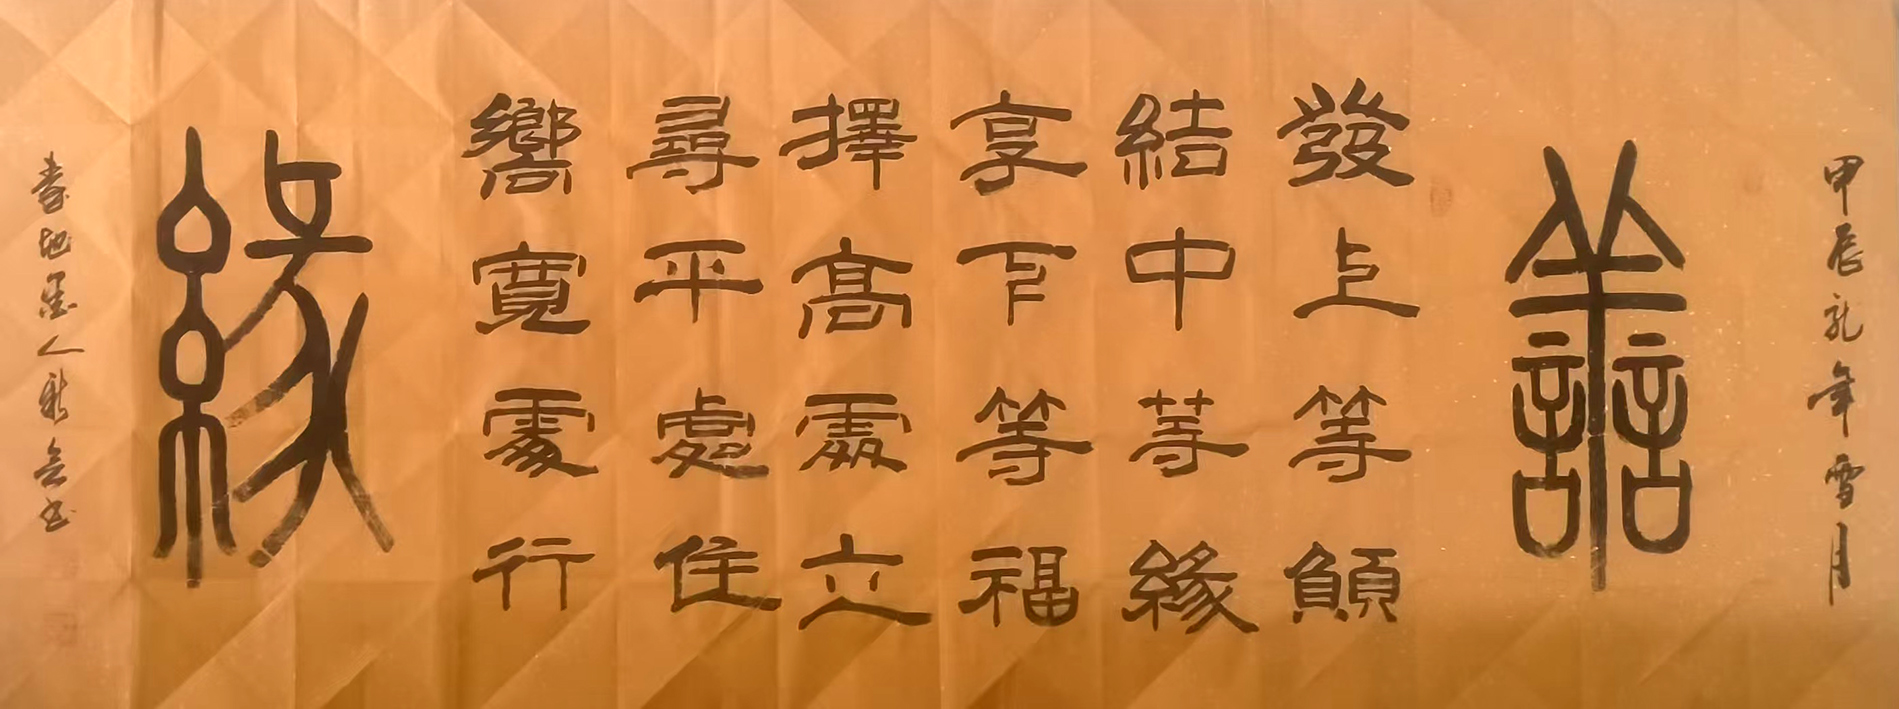 甲辰龍年雪月
善
發上等願
結中等緣
享下等福
擇高處立
尋平處住
嚮寬處行
緣
書地墨人
書